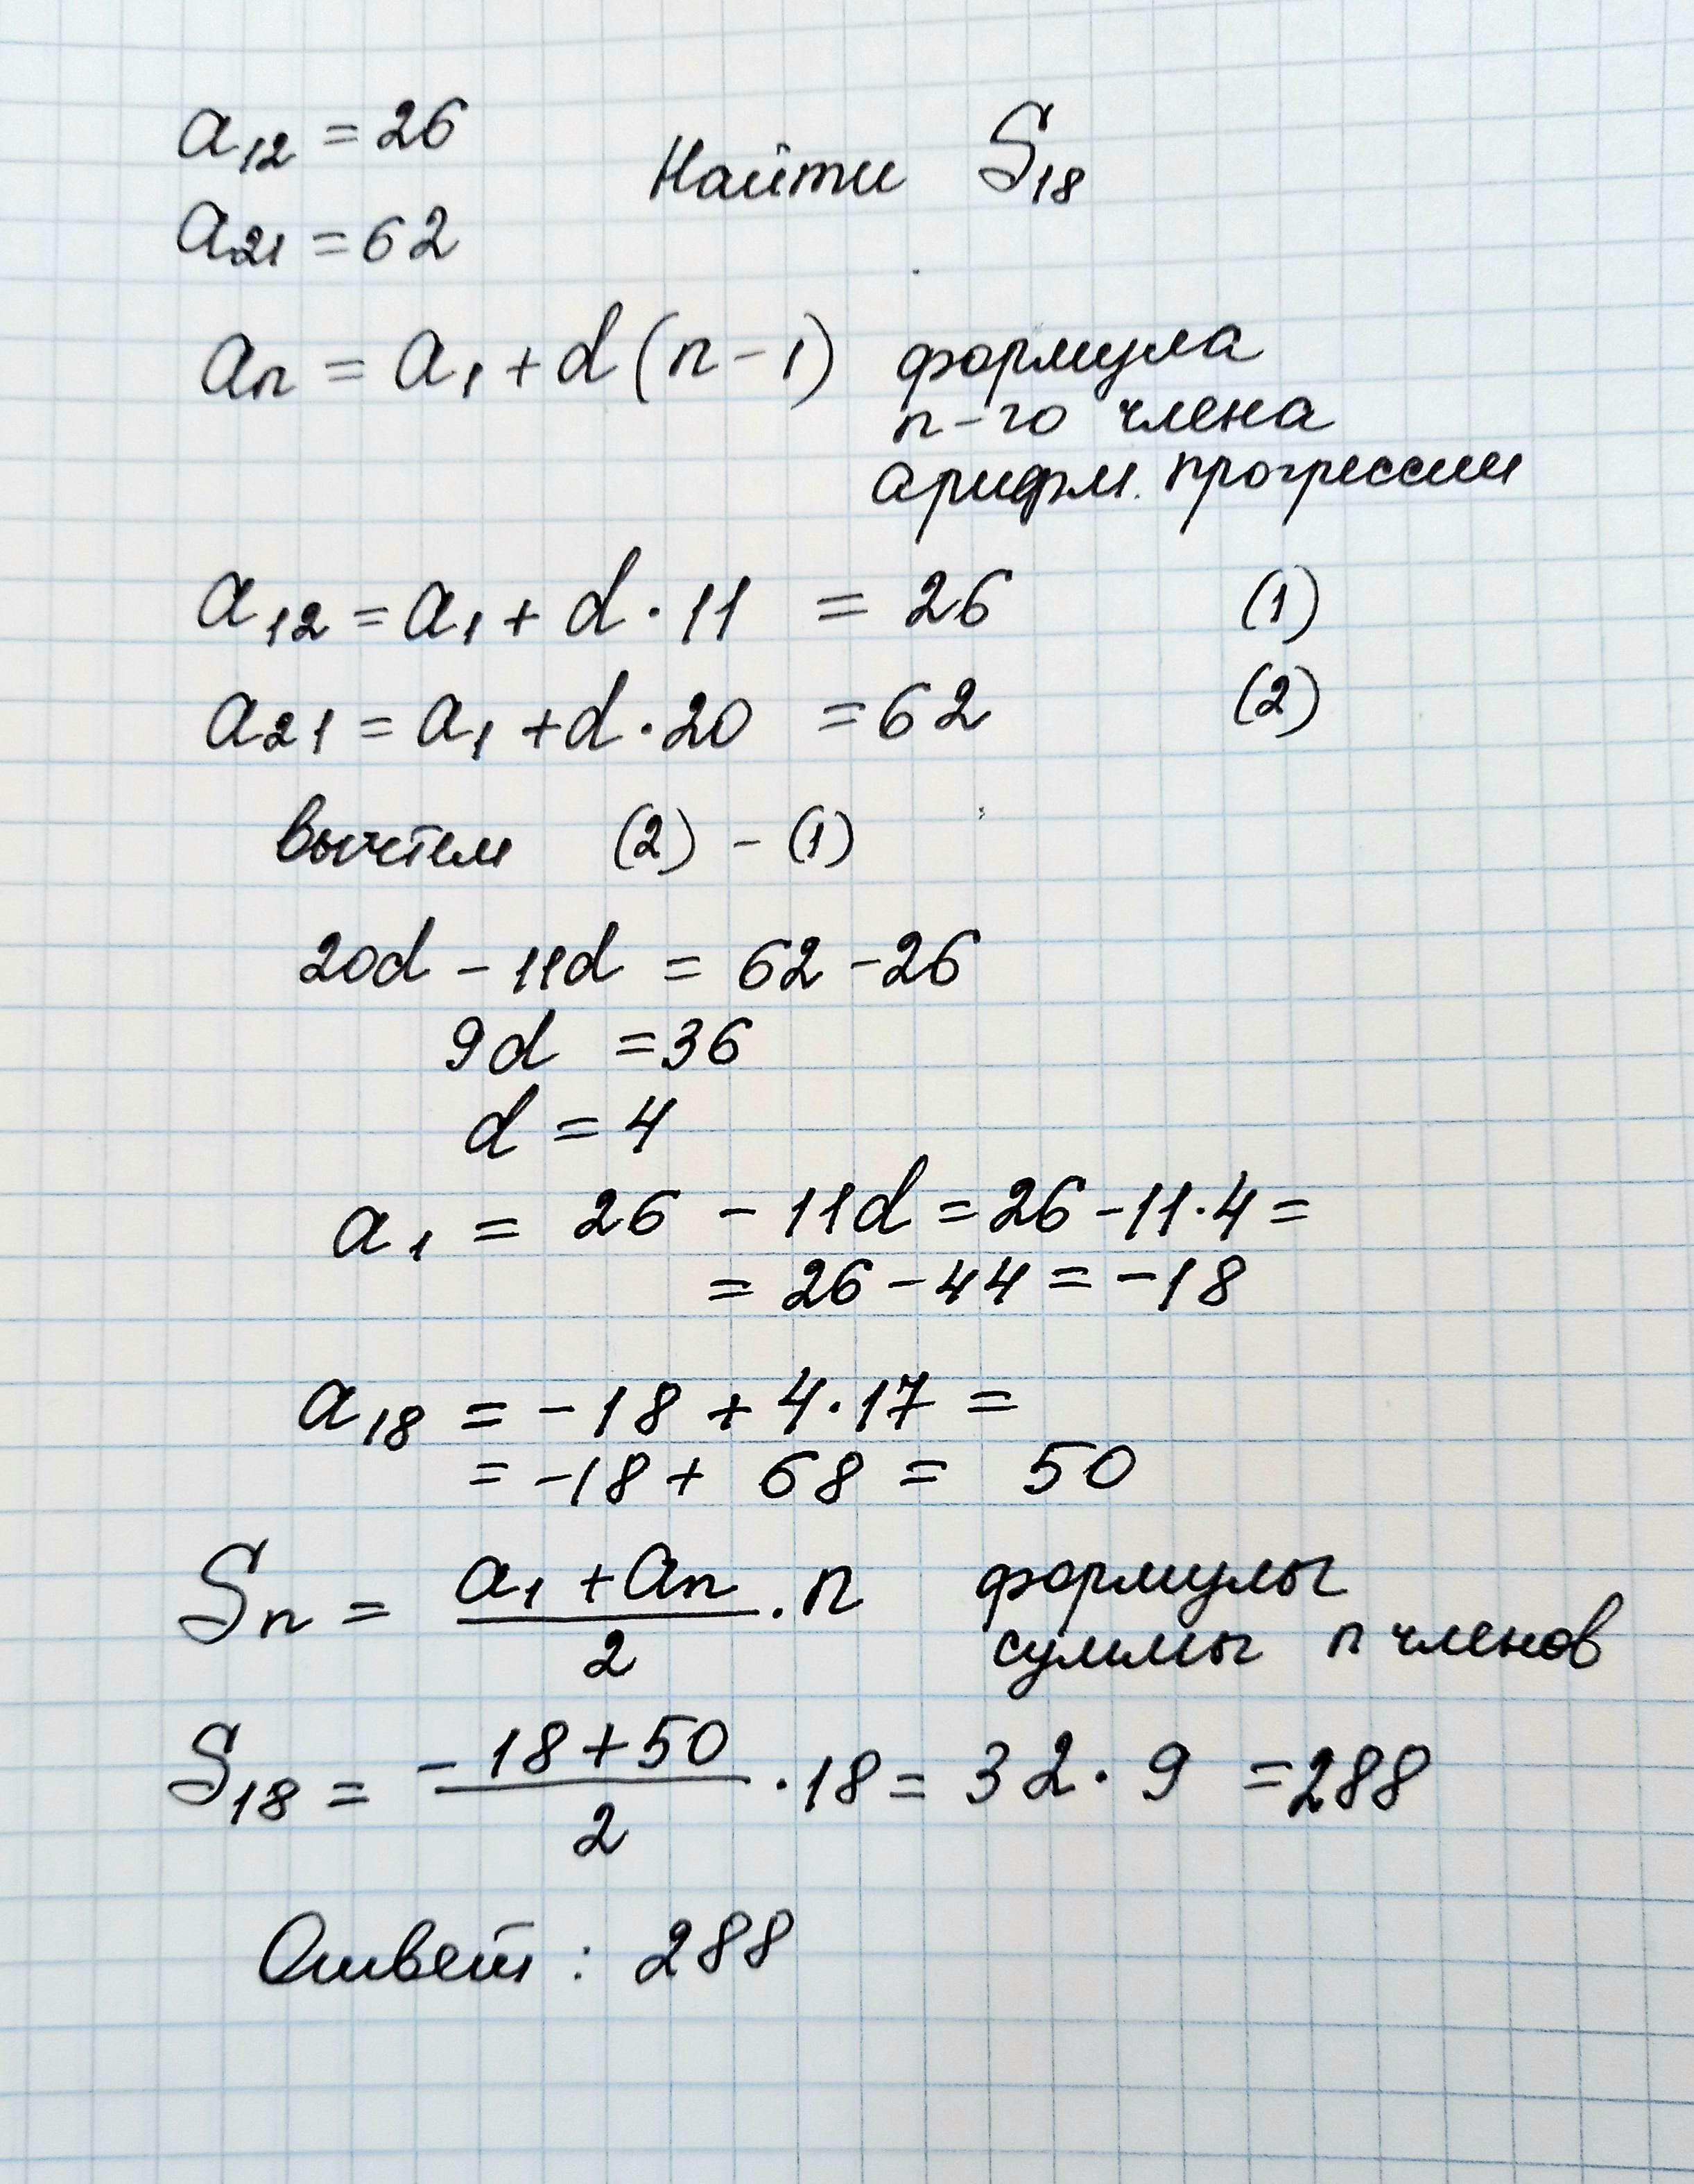 a₁₂ = 26
Найти S₁₈
a₂₁ = 62
aₙ = a₁ + d(n - 1) формула
n-го члена
арифм. прогрессии
a₁₂ = a₁ + d · 11 = 26 (1)
a₂₁ = a₁ + d · 20 = 62 (2)
вычтем (2) - (1)
20d - 11d = 62 - 26
9d = 36
d = 4
a₁ = 26 - 11d = 26 - 11 · 4 =
= 26 - 44 = -18
a₁₈ = -18 + 4 · 17 =
= -18 + 68 = 50
Sₙ = (a₁ + aₙ)/2 · n формулы
суммы n членов
S₁₈ = (-18 + 50)/2 · 18 = 32 · 9 = 288
Ответ : 288